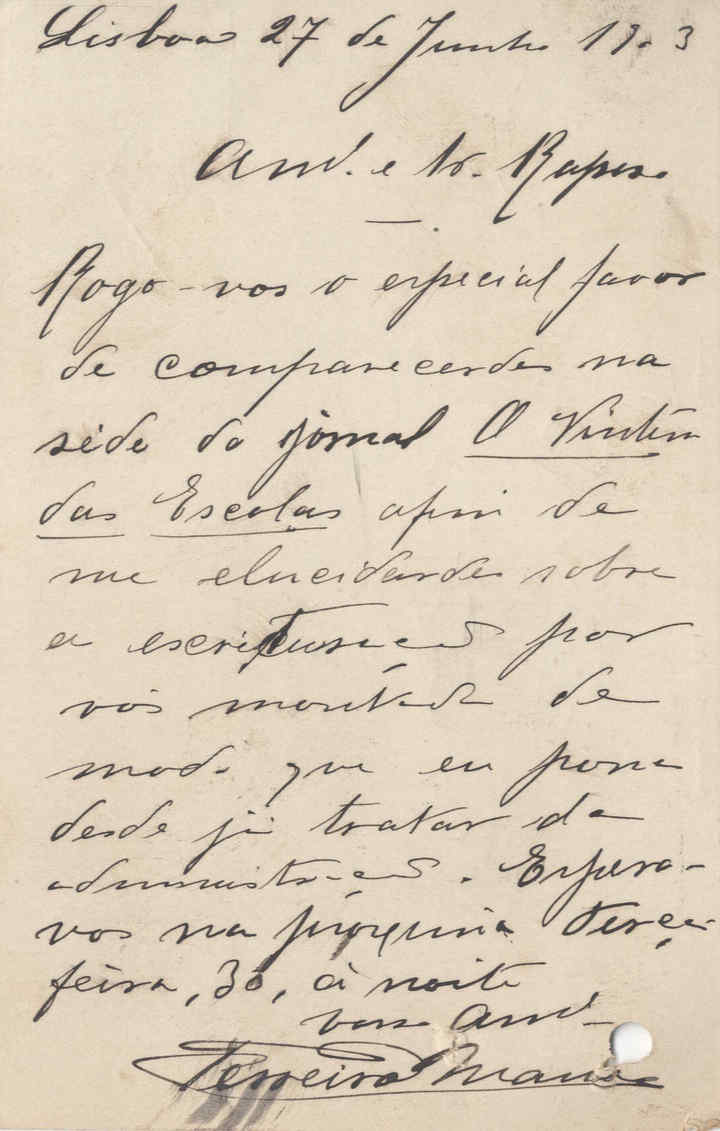 Lisboa 27 de Junho 19.3
Am.º e Sr. Raposo
Rogo-vos o especial favor
de comparecerdes na
séde do jornal O Vintém
das Escolas afim de
me elucidardes sobre
a escrituração por
vós montada de
modo que eu possa
desde já tratar da
administração. Espero-
vos na próxima terça
feira, 30, á noite
vosso Am.º
Ferreira Manso